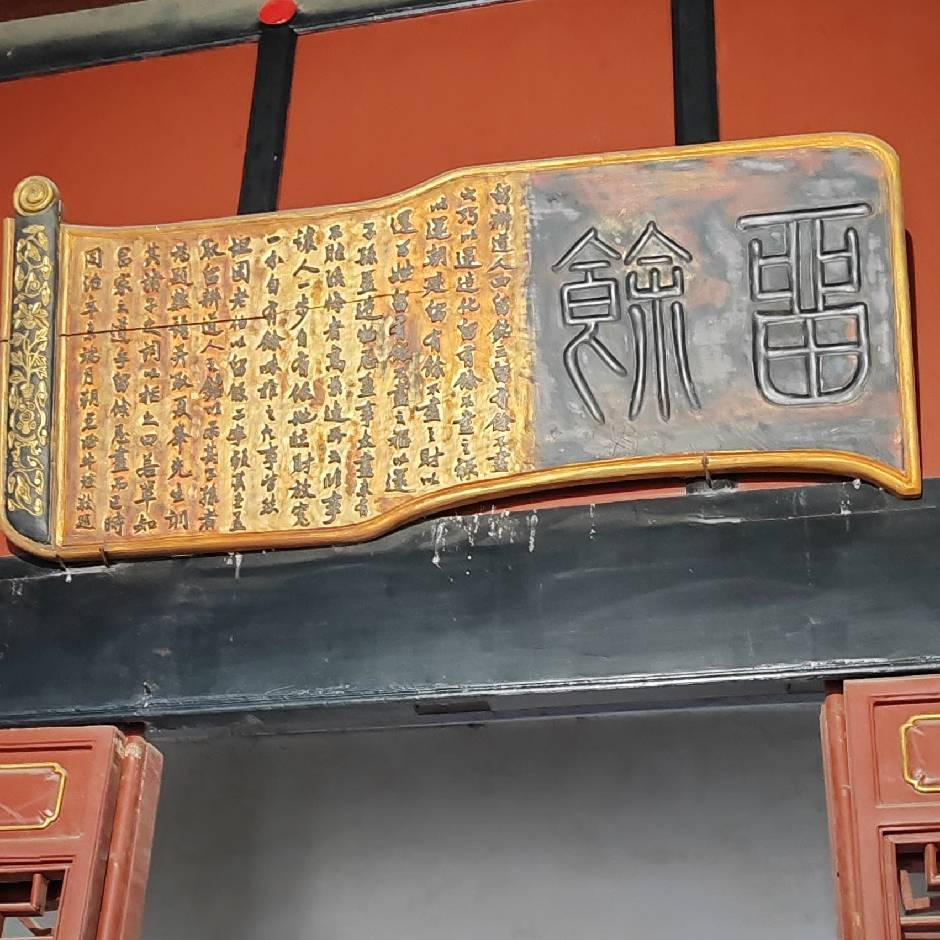 留餘
留耕道人四留銘云留有餘不盡
之巧以還造化留有餘不盡之祿
以還朝廷留有餘不盡之財以
還百姓留有餘不盡之福以還
子孫蓋造物忌盈事太盡未有
不貽後悔者高景逸所云臨事
讓人一步自有餘地臨財放寬
一分自有餘味推之凡事皆然
坦園老伯以留餘二字顏其堂蓋
取留耕道人之銘以示其子孫者
為題數語并取夏峯先生訓
其諸子之詞以括之曰若輩知
昌家之道乎留餘忌盡而已時
同治辛未端月朔愚世姪牛瑄敬題